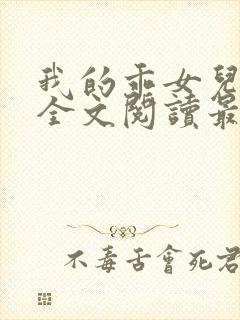 我的乖女兒
全文閱讀最
不毒舌會死君